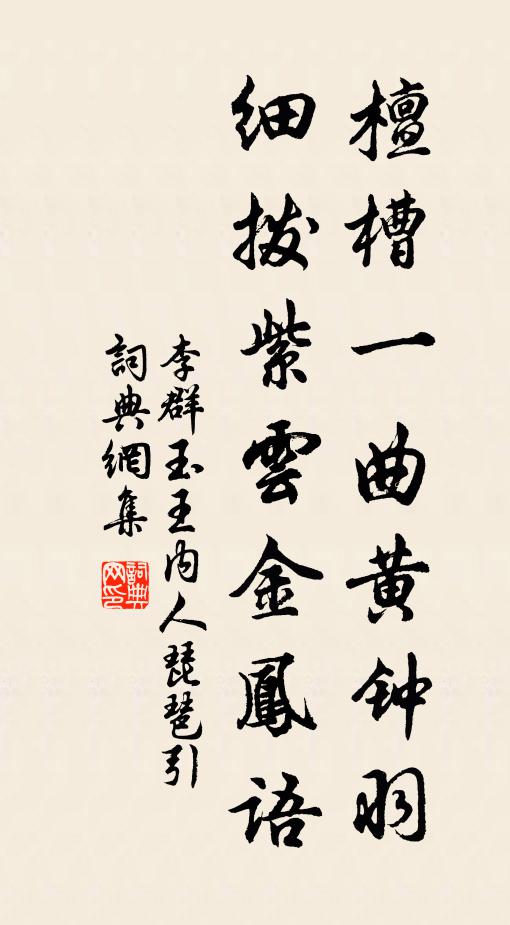 檀槽一曲黄钟羽
細撥紫雲金鳳語
李群玉王内人琵琶引
詞典網集
詞典网印